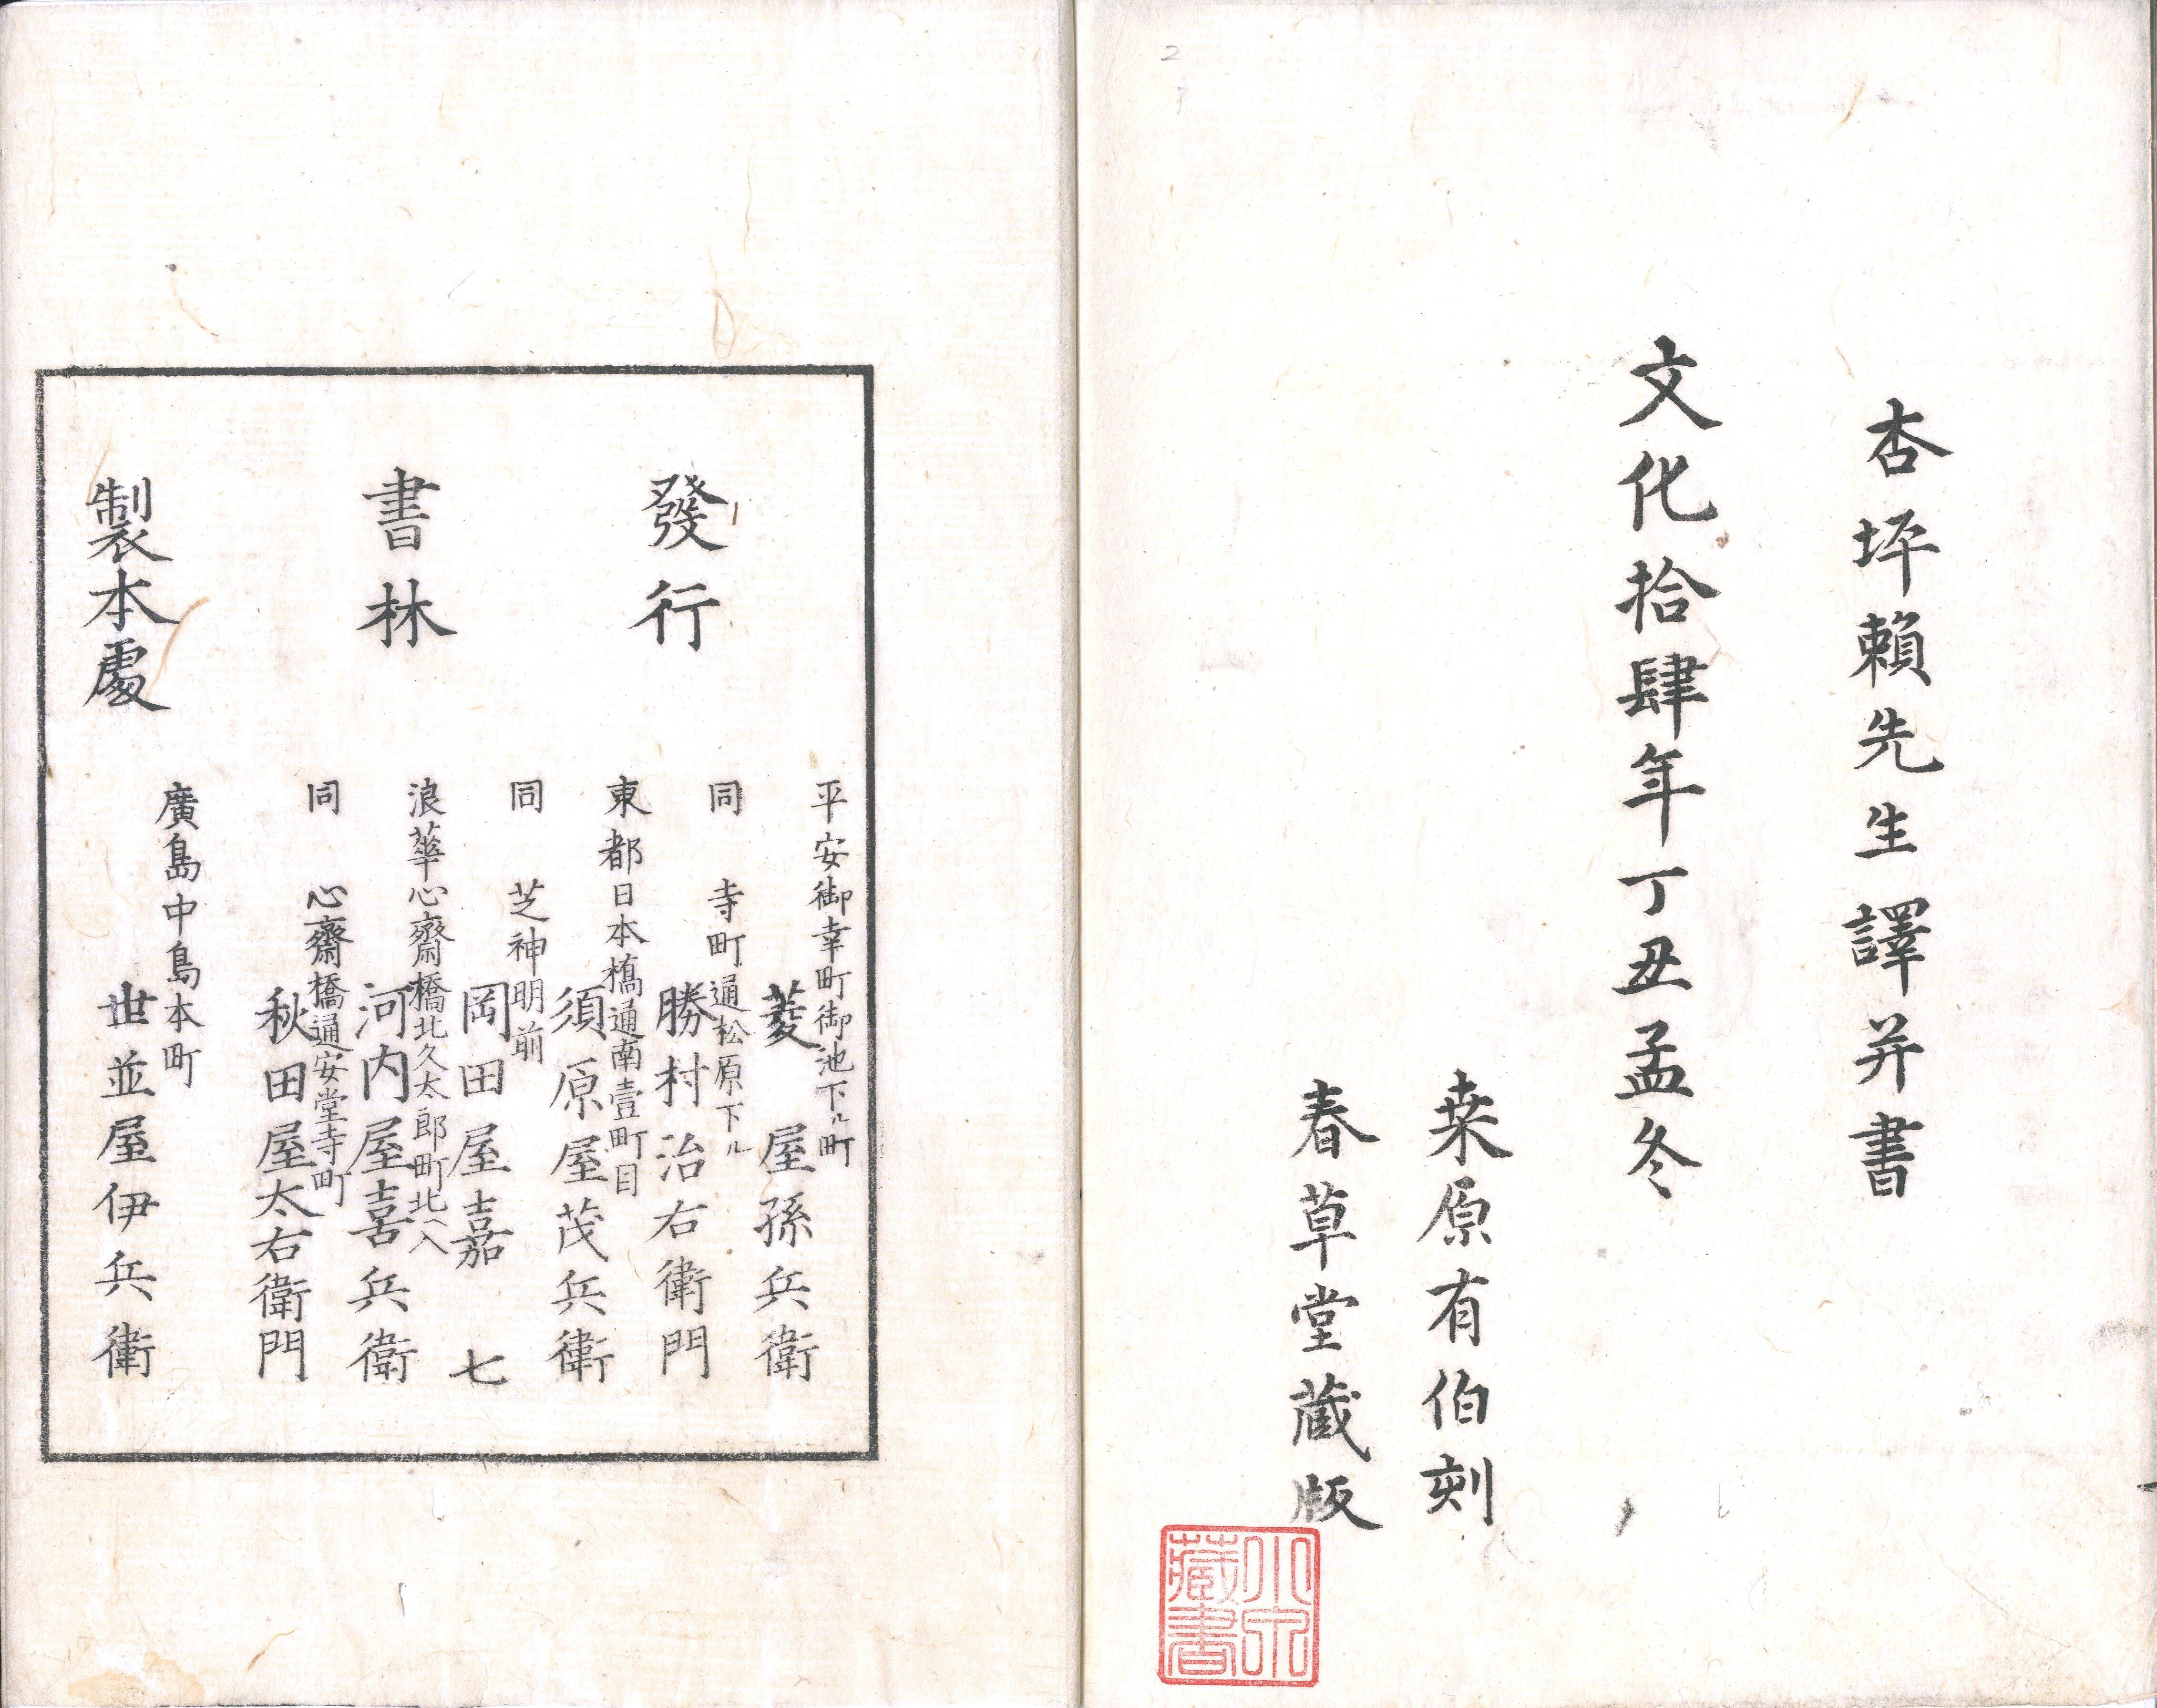 杏坪賴先生譯并書
文化拾肆年丁丑孟冬
桒原有伯刻
春草堂蔵版
藏書
發行
書林
平安御幸町御池下ル町
菱屋孫兵衛
同寺町通松原下ル
勝村治右衛門
東都日本槗通南壹町目
須原屋茂兵衛
同芝神明前
岡田屋嘉七
浪華心齋橋北久太郎町北入
河内屋喜兵衛
同心齋橋通安堂寺町
秋田屋太右衛門
製本處
廣島中島本町
世並屋伊兵衛